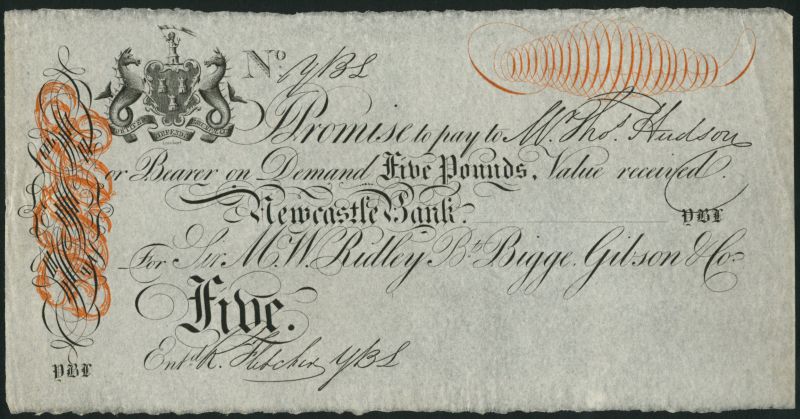 No. YBL
FORTITER DEFENDIT TRIUMPHANS
I Promise to pay to Mr. Thos. Hudson
or Bearer on Demand Five Pounds, Value received.
Newcastle Bank. YBL
For Sir M. W. Ridley Bt. Bigge, Gibson & Co.
Five.
Entd. K. Fletcher YBL
YBL